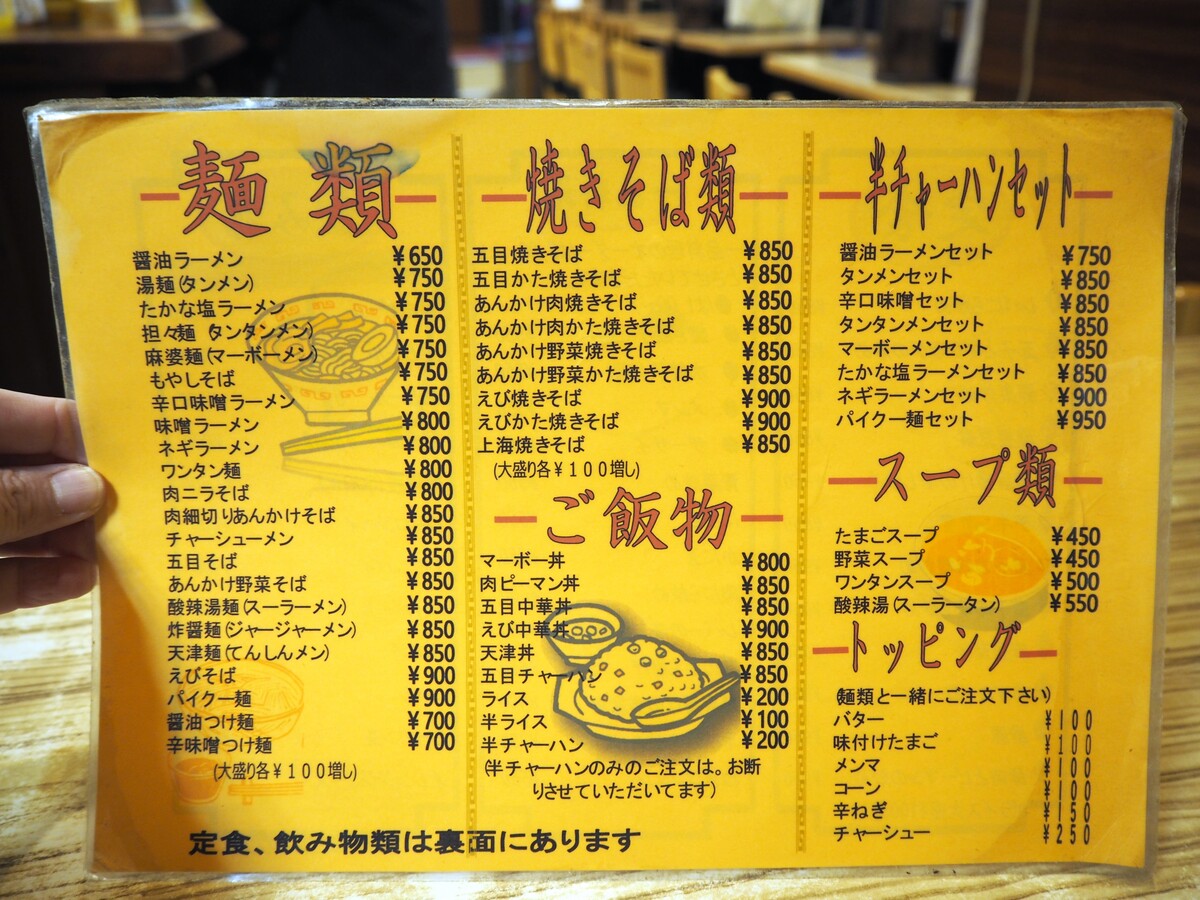 麺類
醤油ラーメン ¥650
湯麺(タンメン) ¥750
たかな塩ラーメン ¥750
担々麺(タンタンメン) ¥750
麻婆麺(マーボーメン) ¥750
もやしそば ¥750
辛口味噌ラーメン ¥750
味噌ラーメン ¥800
ネギラーメン ¥800
ワンタン麺 ¥800
肉ニラそば ¥800
肉細切りあんかけそば ¥850
チャーシューメン ¥850
五目そば ¥850
あんかけ野菜そば ¥850
酸辣湯麺(スーラーメン) ¥850
炸醤麺(ジャージャーメン) ¥850
天津麺(てんしんメン) ¥850
えびそば ¥900
パイクー麺 ¥900
醤油つけ麺 ¥700
辛味噌つけ麺 ¥700
(大盛り各¥100増し)
焼きそば類
五目焼きそば ¥850
五目かた焼きそば ¥850
あんかけ肉焼きそば ¥850
あんかけ肉かた焼きそば ¥850
あんかけ野菜焼きそば ¥850
あんかけ野菜かた焼きそば ¥850
えび焼きそば ¥900
えびかた焼きそば ¥900
上海焼きそば ¥850
(大盛り各¥100増し)
ご飯物
マーボー丼 ¥800
肉ピーマン丼 ¥850
五目中華丼 ¥850
えび中華丼 ¥900
天津丼 ¥850
五目チャーハン ¥850
ライス ¥200
半ライス ¥100
半チャーハン ¥200
(半チャーハンのみのご注文は。お断
りさせていただいてます)
半チャーハンセット
醤油ラーメンセット ¥750
タンメンセット ¥850
辛口味噌セット ¥850
タンタンメンセット ¥850
マーボーメンセット ¥850
たかな塩ラーメンセット ¥850
ネギラーメンセット ¥900
パイクー麺セット ¥950
スープ類
たまごスープ ¥450
野菜スープ ¥450
ワンタンスープ ¥500
酸辣湯(スーラータン) ¥550
トッピング
(麺類と一緒にご注文下さい)
バター ¥100
味付けたまご ¥100
メンマ ¥100
コーン ¥100
辛ねぎ ¥150
チャーシュー ¥250
定食、飲み物類は裏面にあります